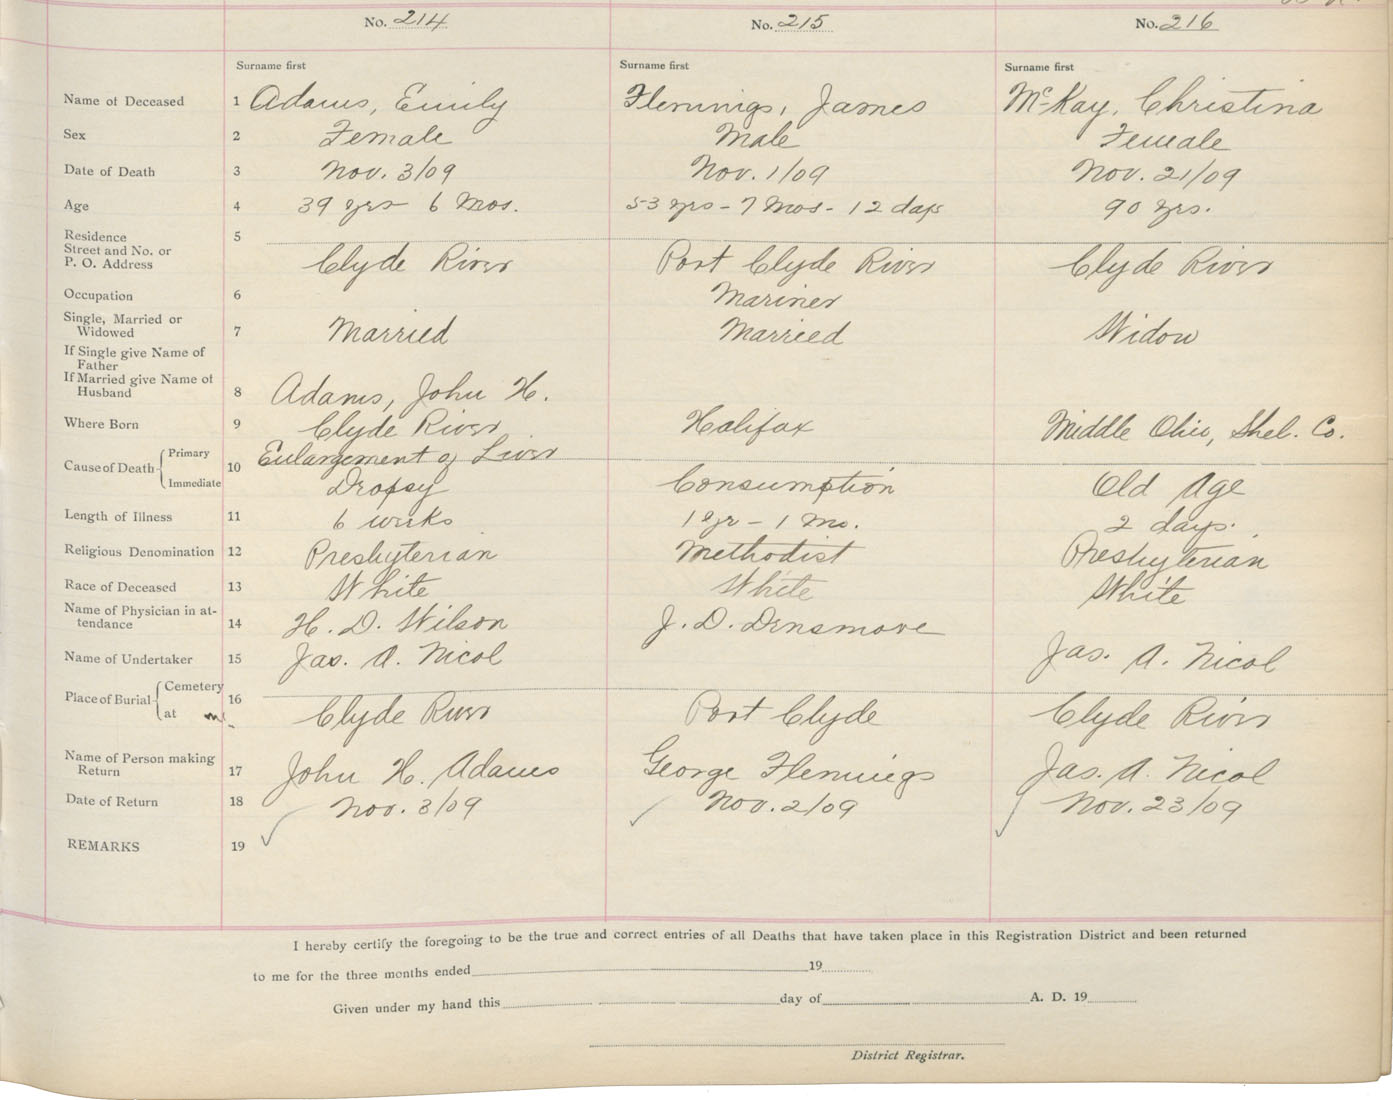 No. 214 No. 215 No. 216
Surname first Surname first Surname first
Name of Deceased 1 Adams, Emily Flemings, James McKay, Christina
Sex 2 Female Male Female
Date of Death 3 Nov. 3/09 Nov. 1/09 Nov. 21/09
Age 4 39 yrs 6 Mos. 53 yrs - 7 Mos - 12 days 90 yrs.
Residence 5
Street and No. or
P. O. Address Clyde River Port Clyde River Clyde River
Occupation 6 Mariner
Single, Married or
Widowed 7 Married Married Widow
If Single give Name of
Father
If Married give Name of
Husband 8 Adams, John H.
Where Born 9 Clyde River Halifax Middle Ohio, Shel. Co.
Cause of Death Primary 10 Enlargement of Liver
Immediate Dropsy Consumption Old Age
Length of Illness 11 6 weeks 1 yr - 1 Mo. 2 days.
Religious Denomination 12 Presbyterian Methodist Presbyterian
Race of Deceased 13 White White White
Name of Physician in at-
tendance 14 H. D. Wilson J. D. Densmore
Name of Undertaker 15 Jas. A. Nicol Jas. A. Nicol
Place of Burial Cemetery 16
at Clyde River Port Clyde Clyde River
Name of Person making
Return 17 John H. Adams George Flemings Jas. A. Nicol
Date of Return 18 Nov. 3/09 Nov. 2/09 Nov. 23/09
REMARKS 19
I hereby certify the foregoing to be the true and correct entries of all Deaths that have taken place in this Registration District and been returned
to me for the three months ended 19
Given under my hand this day of A. D. 19
District Registrar.